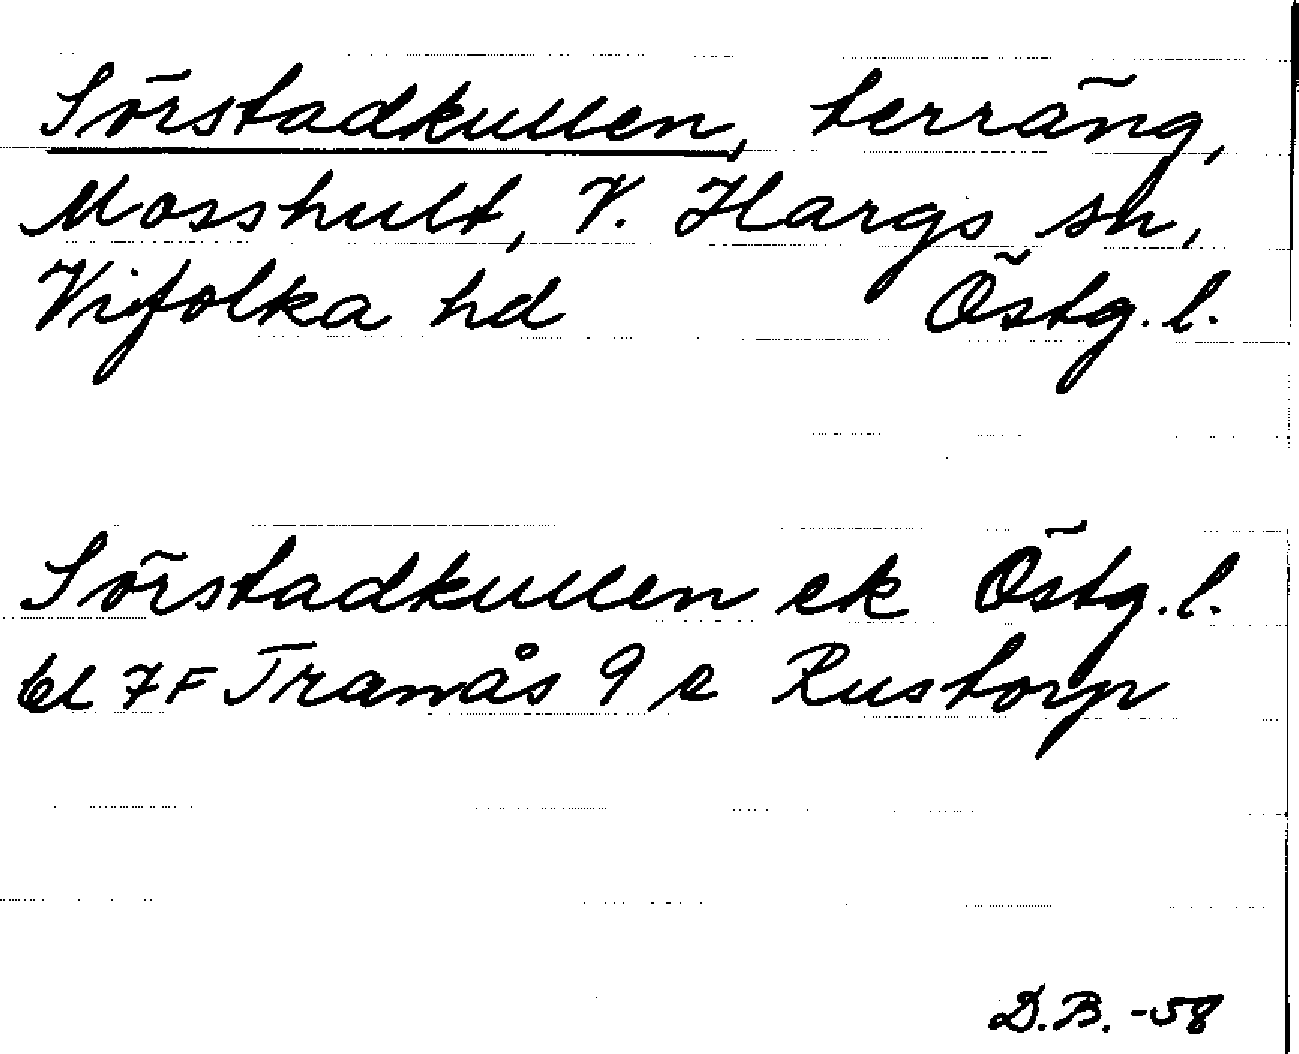 Sörstadkullen, terräng,
Mosshult, V. Hargs sn,
Vifolka hd Östg. l.
Sörstadkullen ek Östg. l.
bl 7F Tranås 9 e Rustorp
D.B. -58